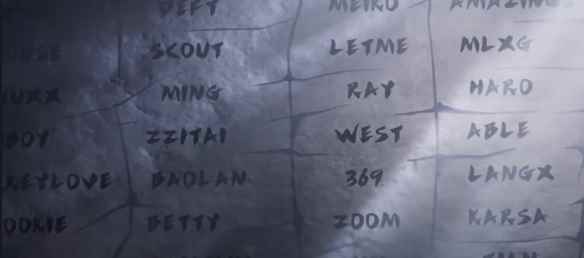 DEFT MEIKO AMAZING
SKOUT LETME MLXG
MING RAY HARO
BOY ZZITAI WEST ABLE
BADLAN 369 LANGX
OOKIE BETTY ZOOM KARSA